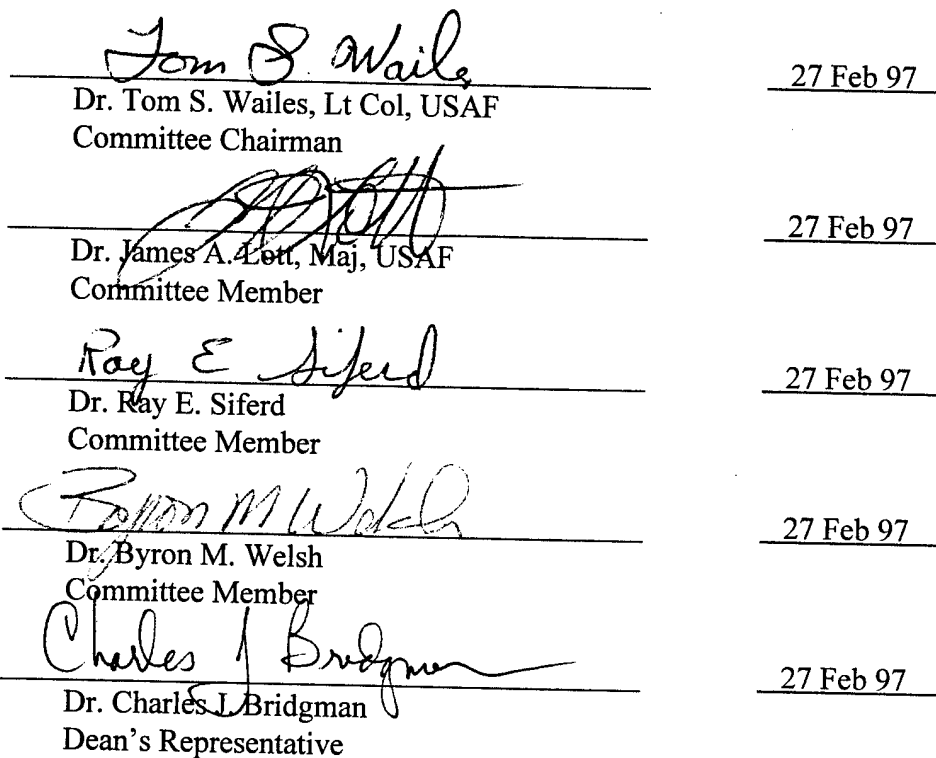 Tom S. Wailes 27 Feb 97
Dr. Tom S. Wailes, Lt Col, USAF
Committee Chairman
27 Feb 97
Dr. James A. Lott, Maj, USAF
Committee Member
Ray E Siferd 27 Feb 97
Dr. Ray E. Siferd
Committee Member
Byron M Welsh 27 Feb 97
Dr. Byron M. Welsh
Committee Member
Charles J Bridgman 27 Feb 97
Dr. Charles J. Bridgman
Dean's Representative